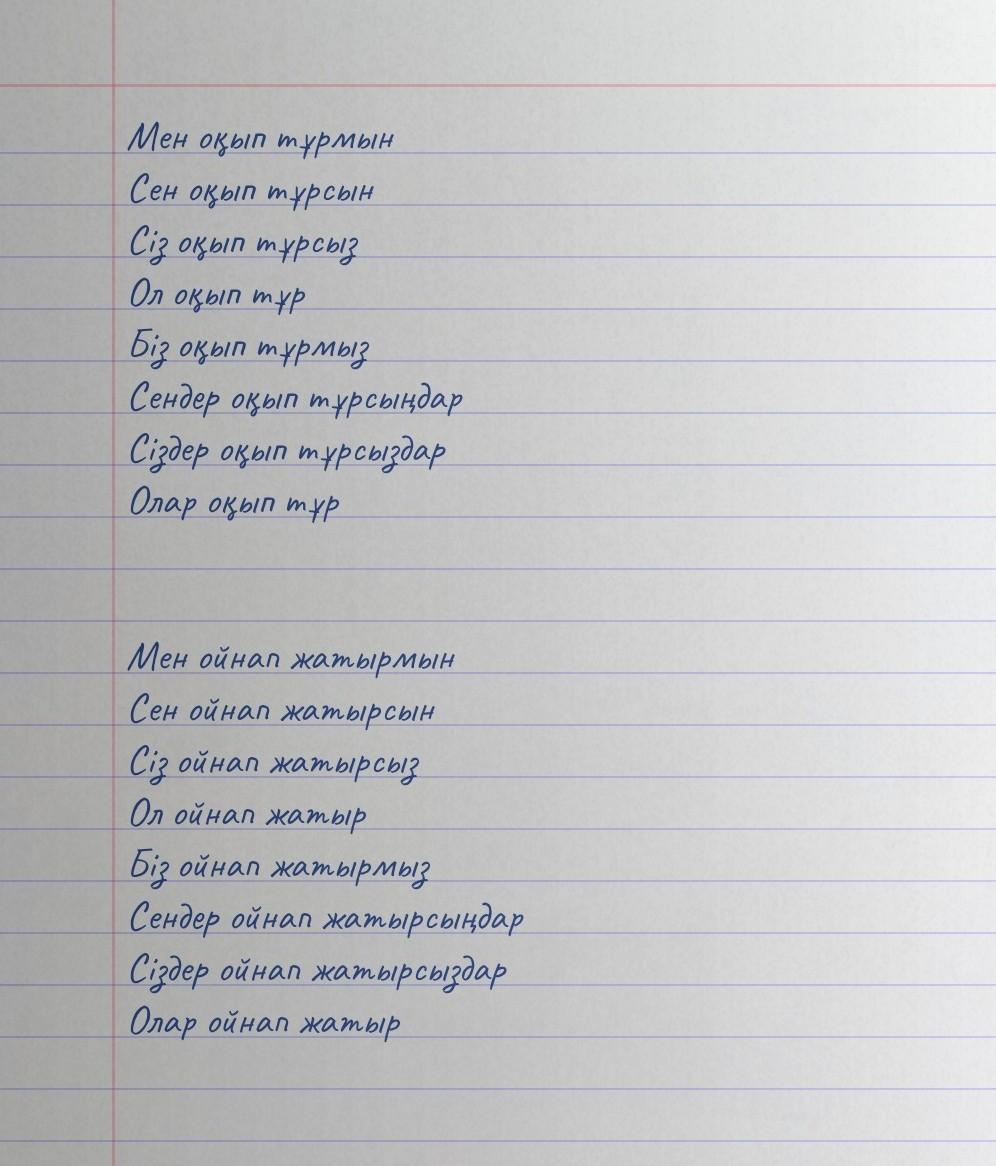 Мен оқып тұрмын
Сен оқып тұрсын
Сіз оқып тұрсыз
Ол оқып тұр
Біз оқып тұрмыз
Сендер оқып тұрсыңдар
Сіздер оқып тұрсыздар
Олар оқып тұр
Мен ойнап жатырмын
Сен ойнап жатырсын
Сіз ойнап жатырсыз
Ол ойнап жатыр
Біз ойнап жатырмыз
Сендер ойнап жатырсыңдар
Сіздер ойнап жатырсыздар
Олар ойнап жатыр